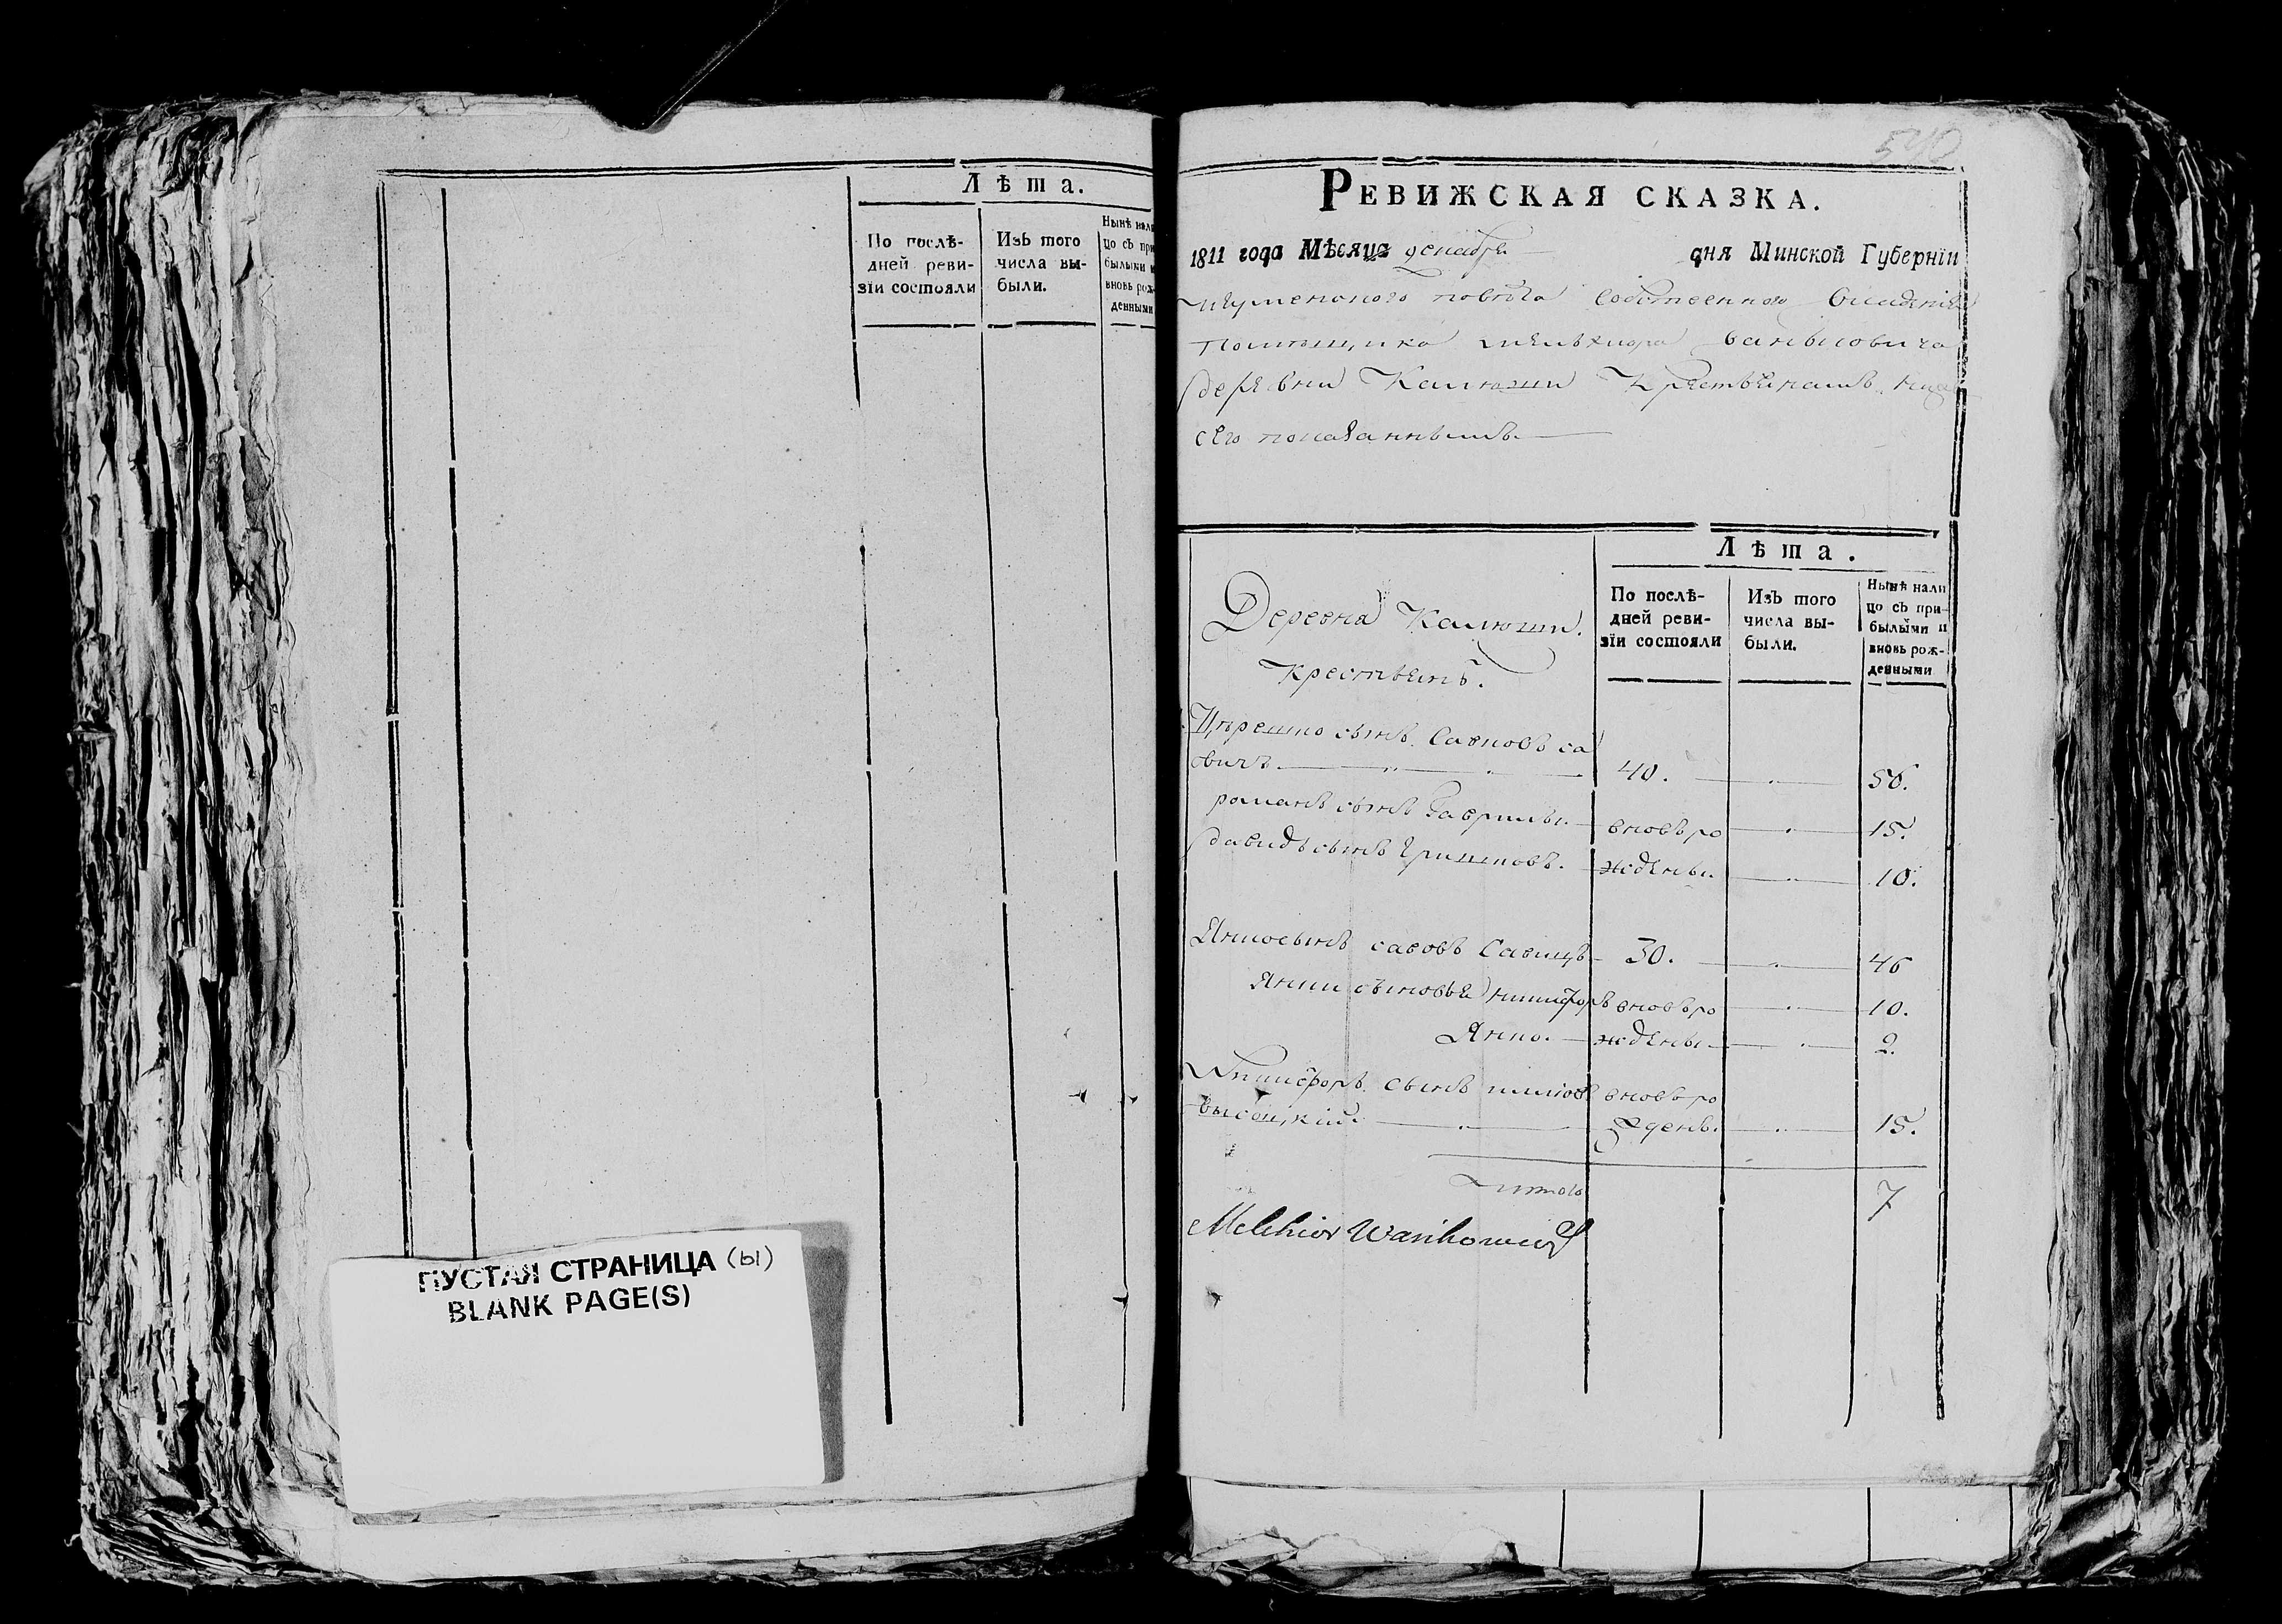 Лѣта.
По послѣ-
дней реви-
зїи состояли
Изъ того
числа вы-
были.
Нынѣ нали
цо съ при
былыми и
вновь рож-
денными
ПУСТАЯ СТРАНИЦА (ы)
BLANK PAGE(S)
540
РЕВИЖСКАЯ СКАЗКА.
1811 года Мѣсяца декабря дня Минской Губернїи
игуменского повѣта собственного владенія
помѣщика мельхиора ваньковича
деревни Калюжи Крестьянамъ ниже
сего показаннымъ
Лѣта.
По послѣ-
дней реви-
зїи состояли
Изъ того
числа вы-
были.
Нынѣ нали
цо съ при-
былыми и
вновь рож-
денными
Деревня Калюжи.
Крестьянъ.
сынъ са
овичъ 40. 56.
романъ сынъ Гаврилы вновь ро 15.
давидъ сынъ Гришковъ. ждены. 10.
савовъ Савицъ 30. 46
Янки сыновья никифоръ вновь ро 10.
Янко. ждены. 2.
Никифоръ сынъ вновь ро
высоцкий жденъ. 15.
Итого 7
Melchior Wańkowicz